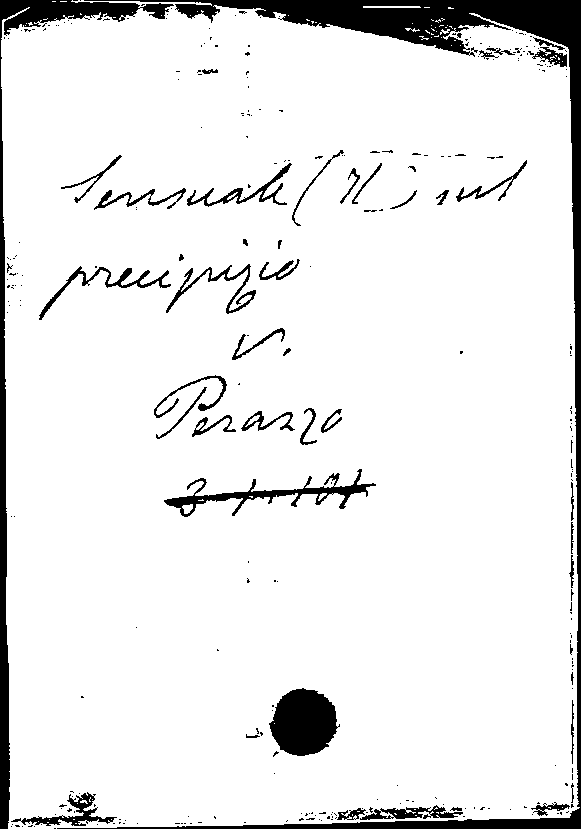 Sensuale (Il) sul
precipizio
v.
Perazzo